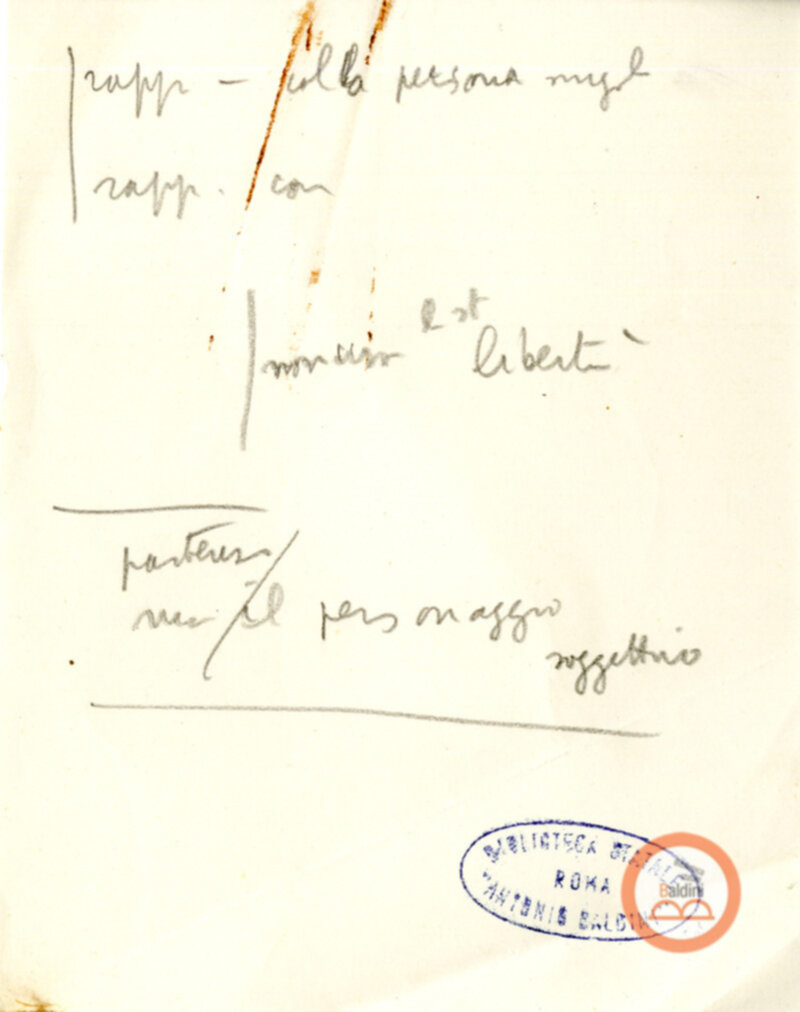 rapp - colla persona
rapp. con
libertà
il personaggio
soggettivo
BIBLIOTECA STATALE
ROMA
"ANTONIO BALDINI"
Baldini